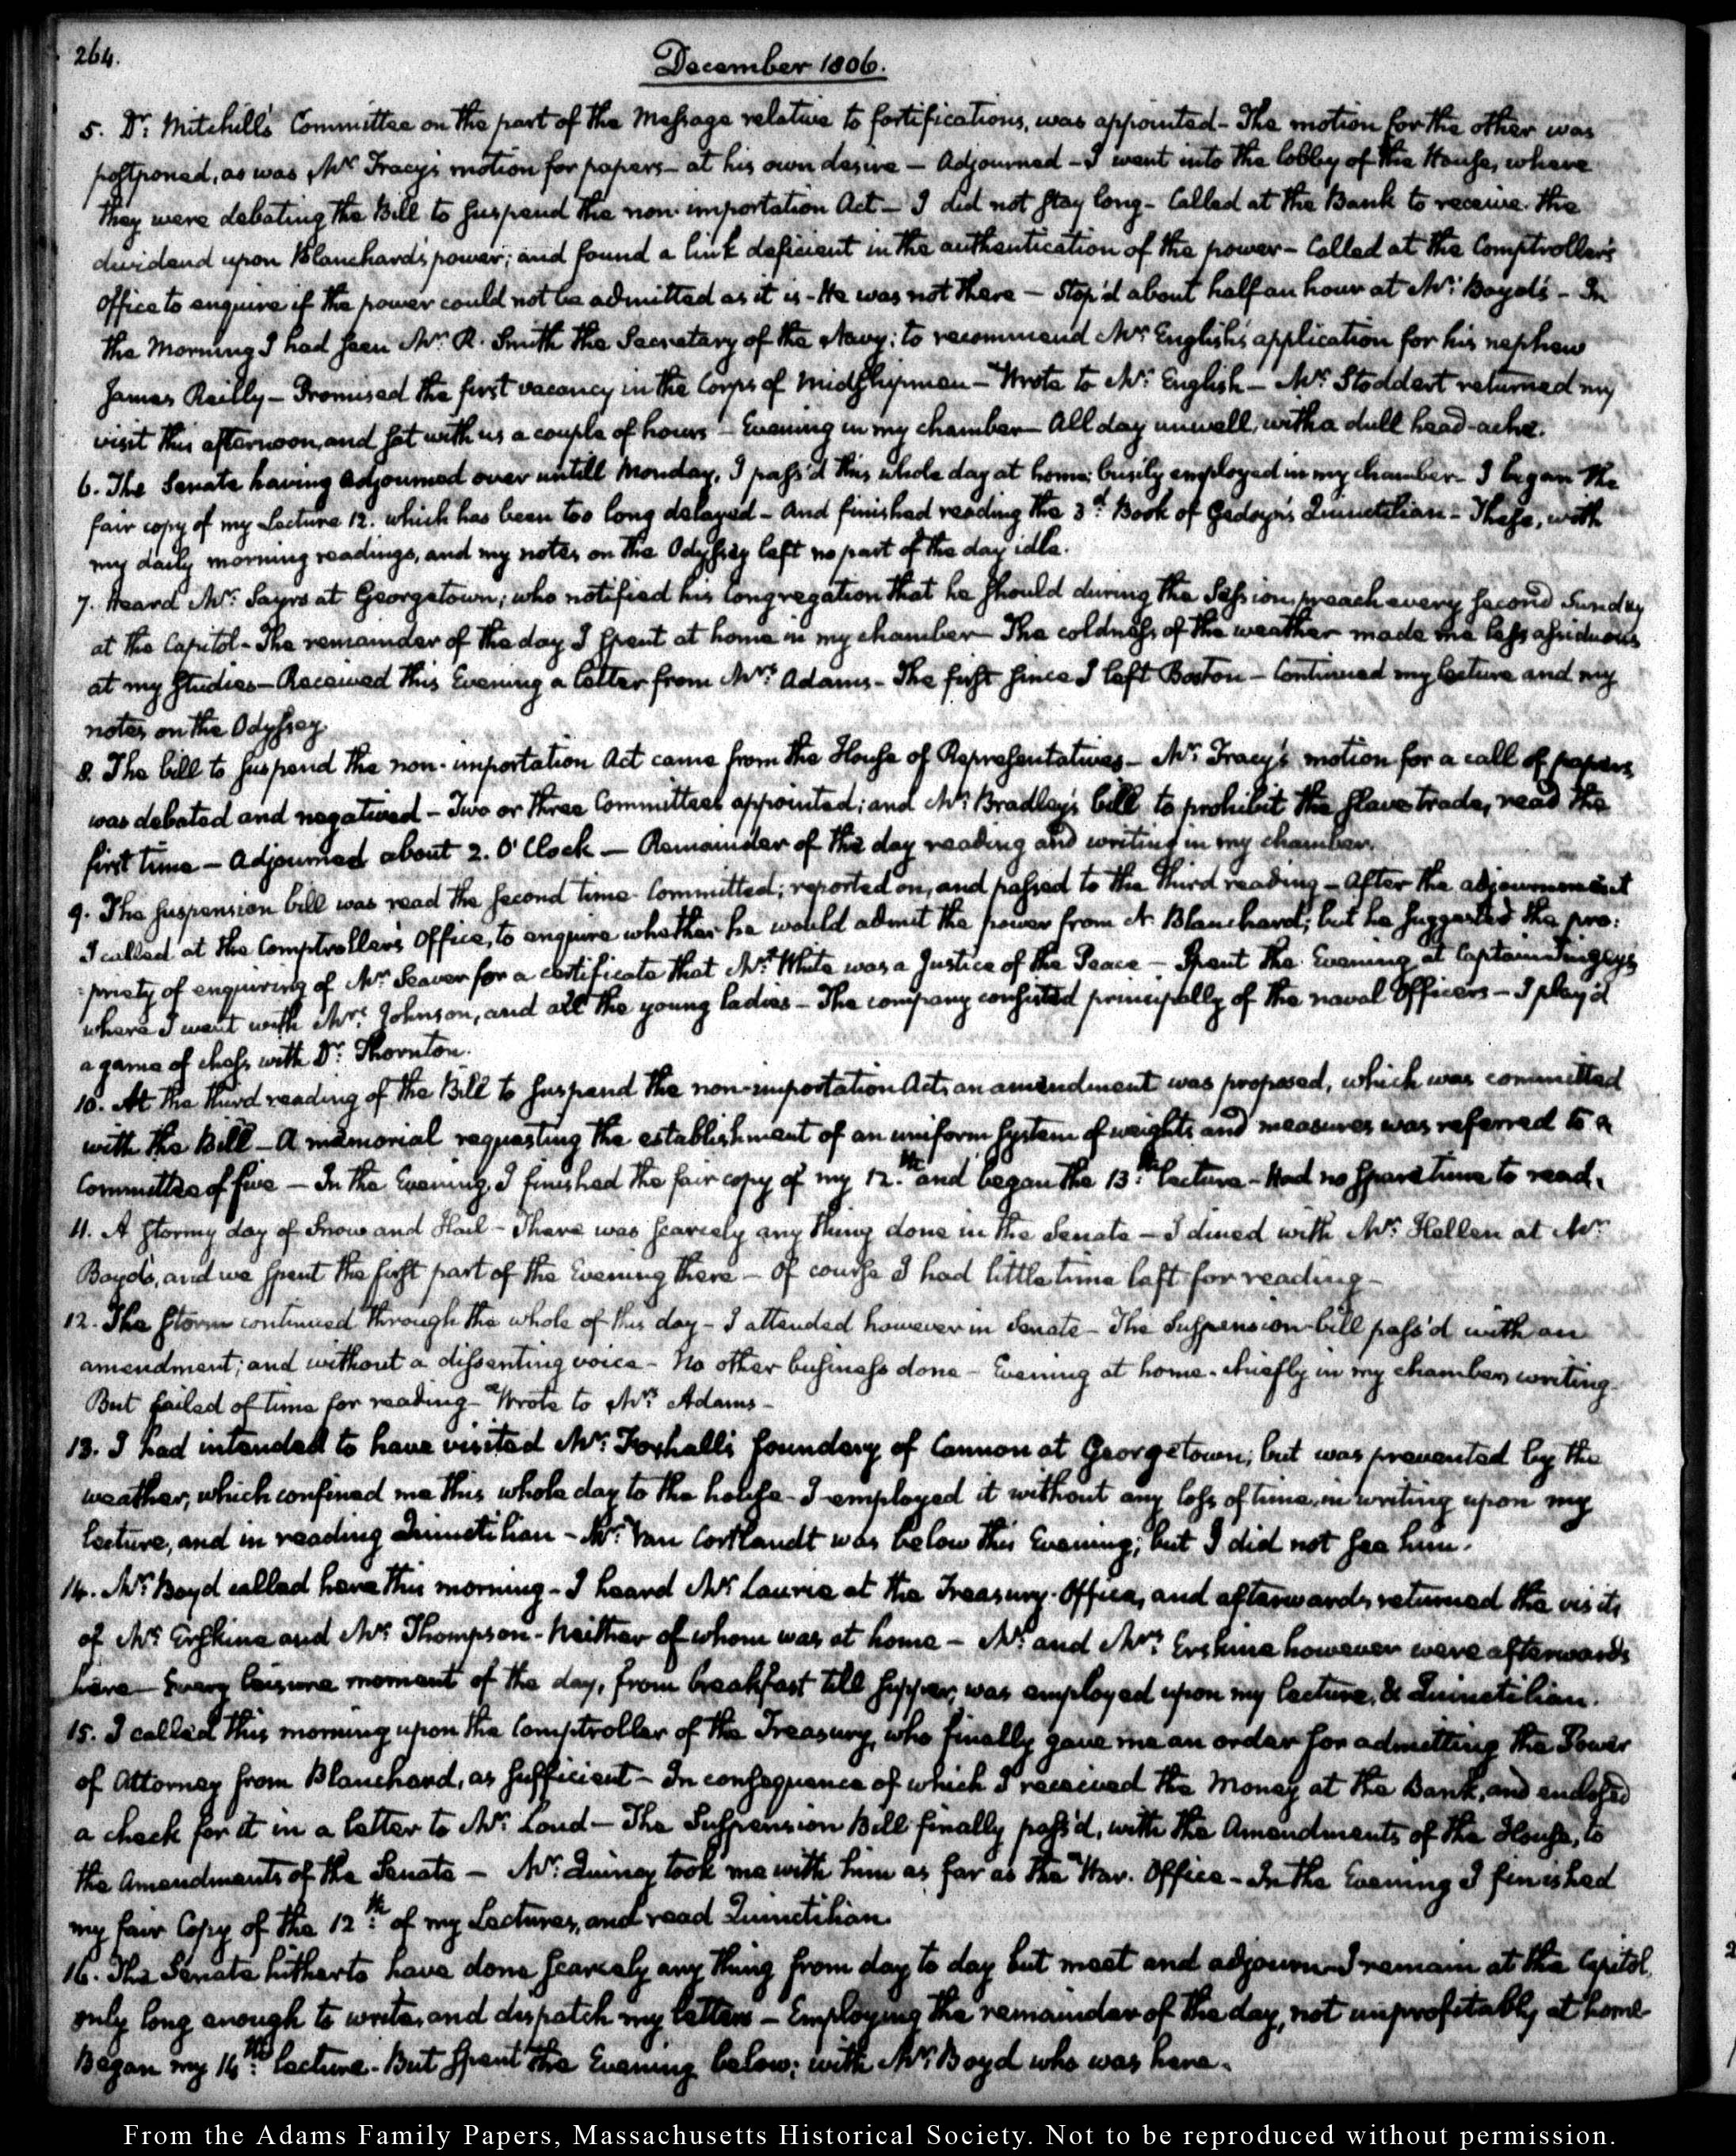 264.
December 1806.
5. Dr: Mitchill's Committee on the part of the Message relative to fortifications, was appointed - The motion for the other was
postponed, as was Mr Tracy's motion for papers - at his own desire - Adjourned - I went into the lobby of the House, where
they were debating the Bill to suspend the non-importation Act - I did not stay long - Called at the Bank to receive the
dividend upon Blanchard's power; and found a link deficient in the authentication of the power - Called at the Comptroller's
Office to enquire if the power could not be admitted as it is - He was not there - Stop'd about half an hour at Mr: Boyd's - In
the Morning I had seen Mr: R. Smith the Secretary of the Navy; to recommend Mr English's application for his nephew
James Reilly - Promised the first vacancy in the Corps of Midshipmen - Wrote to Mr: English - Mr: Stoddert returned my
visit this afternoon, and sat with us a couple of hours - Evening in my chamber - All day unwell, with a dull head-ache.
6. The Senate having adjourned over untill Monday, I pass'd this whole day at home; busily employed in my chamber - I began the
fair copy of my Lecture 12. which has been too long delayed - And finished reading the 3d: Book of Gedoyn's Quinctilian - These, with
my daily morning readings, and my notes on the Odyssey left no part of the day idle.
7. Heard Mr: Sayrs at Georgetown; who notified his Congregation that he should during the Session, preach every second Sunday
at the Capitol - The remainder of the day I spent at home in my chamber - The coldness of the weather made me less assiduous
at my studies - Received this Evening a letter from Mrs: Adams - The first since I left Boston - Continued my lecture and my
notes on the Odyssey.
8. The bill to suspend the non-importation Act came from the House of Representatives - Mr: Tracy's motion for a call of papers
was debated and negatived - Two or three Committees appointed; and Mr: Bradley's bill to prohibit the slave trade, read the
first time - Adjourned about 2. O'Clock - Remainder of the day reading and writing in my chamber.
9. The suspension bill was read the second time. Committed; reported on, and passed to the third reading - After the adjournment
I called at the Comptroller's Office, to enquire whether he would admit the power from A. Blanchard; but he suggested the pro:
:priety of enquiring of Mr Seaver for a certificate that Mr: White was a Justice of the Peace - Spent the Evening at Captain Tingey's
where I went with Mrs: Johnson, and all the young ladies - The company consisted principally of the naval Officers - I play'd
a game of chess with Dr: Thornton.
10. At the third reading of the Bill to suspend the non-importation Act, an amendment was proposed, which was committed
with the Bill - A memorial requesting the establishment of an uniform system of weights and measures was referred to a
Committee of five - In the Evening, I finished the fair copy of my 12th: and began the 13th: lecture - Had no spare time to read.
11. A stormy day of Snow and Hail - There was scarcely any thing done in the Senate - I dined with Mr: Hellen at Mr:
Boyd's, and we spent the first part of the Evening there - Of course I had little time left for reading -
12. The storm continued through the whole of this day - I attended however in Senate - The Suspension bill pass'd with an
amendment; and without a dissenting voice - No other business done - Evening at home - chiefly in my chamber, writing.
But failed of time for reading - Wrote to Mrs Adams -
13. I had intended to have visited Mr: Foxhall's foundery of Cannon at Georgetown; but was prevented by the
weather, which confined me this whole day to the house - I employed it without any loss of time, in writing upon my
lecture, and in reading Quinctilian - Mr: Van Cortlandt was below this Evening; but I did not see him.
14. Mr: Boyd called here this morning - I heard Mr Laurie at the Treasury-Office, and afterwards returned the visits
of Mr: Erskine and Mr: Thompson - Neither of whom was at home - Mr and Mrs: Erskine however were afterwards
here - Every leisure moment of the day, from breakfast till supper, was employed upon my lecture, & Quinctilian.
15. I called this morning upon the Comptroller of the Treasury, who finally gave me an order for admitting the Power
of Attorney from Blanchard, as sufficient - In consequence of which I received the Money at the Bank, and enclosed
a check for it in a letter to Mr: Loud - The Suspension Bill finally pass'd, with the Amendments of the House, to
the Amendments of the Senate - Mr: Quincy took me with him as far as the War-Office - In the Evening I finished
my fair Copy of the 12th: of my Lectures, and read Quinctilian.
16. The Senate hitherto have done scarcely any thing from day to day but meet and adjourn - I remain at the Capitol,
only long enough to write, and dispatch my letters - Employing the remainder of the day, not unprofitably at home
Began my 14th: lecture. But spent the Evening below; with Mr: Boyd who was here.
From the Adams Family Papers, Massachusetts Historical Society. Not to be reproduced without permission.